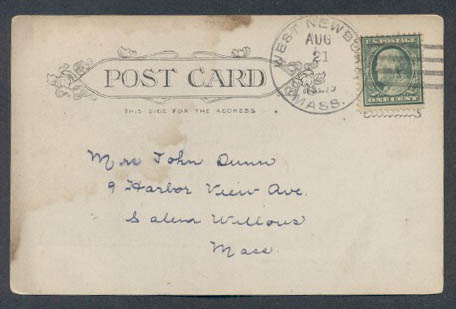 POST CARD
THIS SIDE FOR THE ADDRESS
WEST NEWBURY
AUG
21
MASS.
U.S. POSTAGE
ONE CENT
Mrs John Dunn
9 Harbor View Ave.
Salem Willows
Mass.